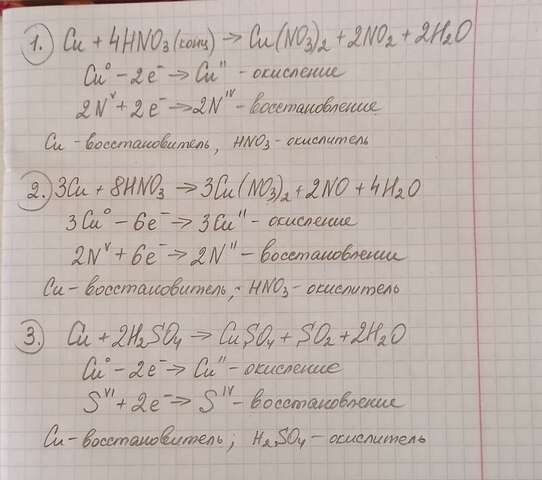 1. Cu + 4HNO₃(конц) → Cu(NO₃)₂ + 2NO₂ + 2H₂O
Cu⁰ - 2e⁻ → Cuᴵᴵ - окисление
2Nⱽ + 2e⁻ → 2Nᴵⱽ - восстановление
Cu - восстановитель, HNO₃ - окислитель
2. 3Cu + 8HNO₃ → 3Cu(NO₃)₂ + 2NO + 4H₂O
3Cu⁰ - 6e⁻ → 3Cuᴵᴵ - окисление
2Nⱽ + 6e⁻ → 2Nᴵᴵ - восстановлении
Cu - восстановитель, - HNO₃ - окислитель
3. Cu + 2H₂SO₄ → CuSO₄ + SO₂ + 2H₂O
Cu⁰ - 2e⁻ → Cuᴵᴵ - окисление
Sⱽᴵ + 2e⁻ → Sᴵⱽ - восстановление
Cu - восстановитель, H₂SO₄ - окислитель